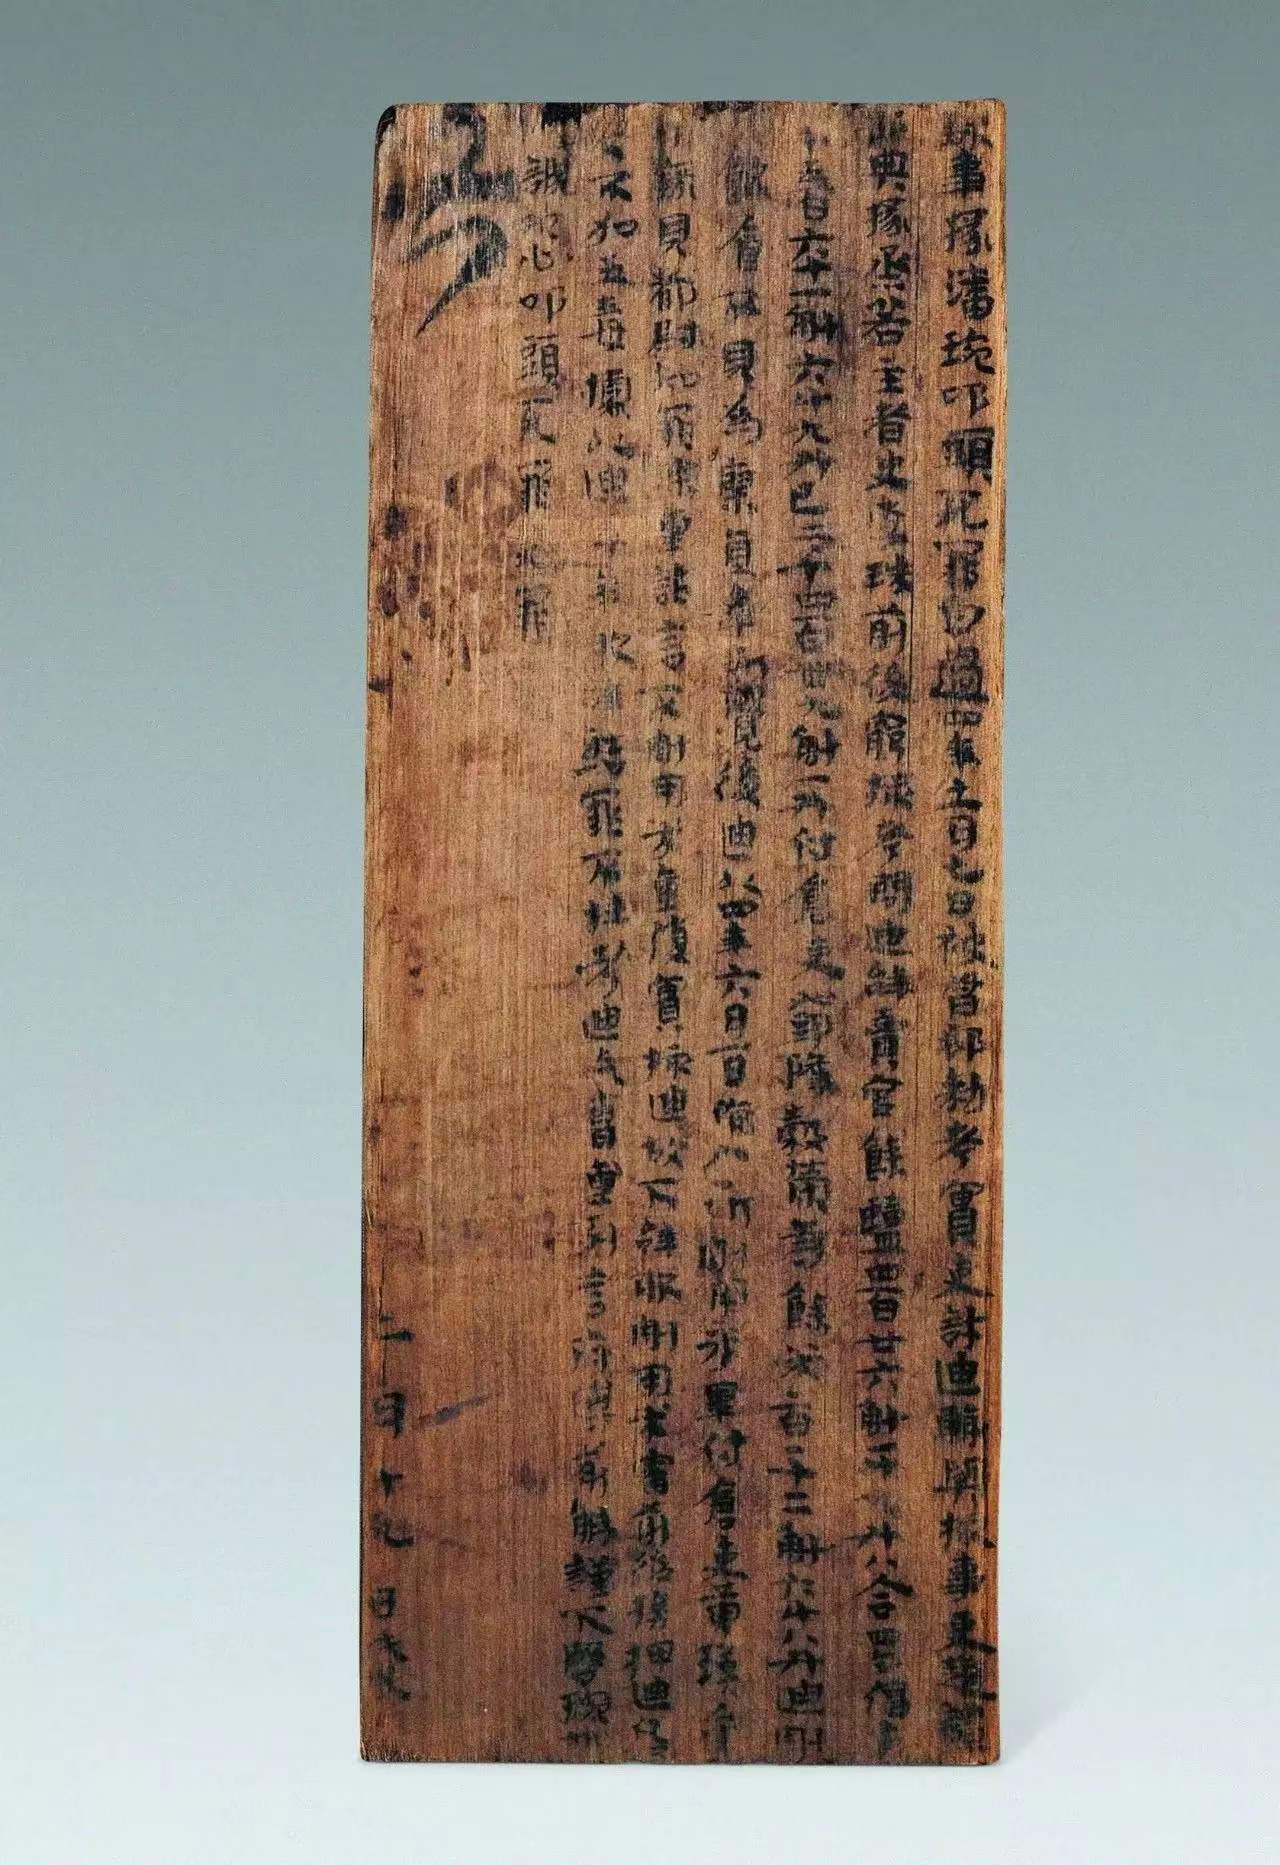 錄事掾潘琬叩頭死罪白過四年十一月七日被督郵勑考實吏許迪輒與核事吏趙譚
部典掾烝若主者史李珠前後窮核考問迪辭賣官餘鹽四百廿六斛一斗九升八合四勺偪米
二千五百六十一斛六斗九升已二千四百卌九斛一升付倉吏鄧隆穀榮等餘米一百一十二斛六斗八升迪割
用飲食不見為廖直事所覺後迪以四年六月一日偷入所割用米畢付倉吏黃瑛受
前錄見都尉知罪深重詐言不割用米重復實核迪故下辭服割用米審前後榜押迪凡百
卅下不加五毒據以迪今年服辭結罪不枉考迪乞曹重列言府傅前解謹下啓琬誠
惶誠恐叩頭死罪死罪
若
二月十九日戊戌